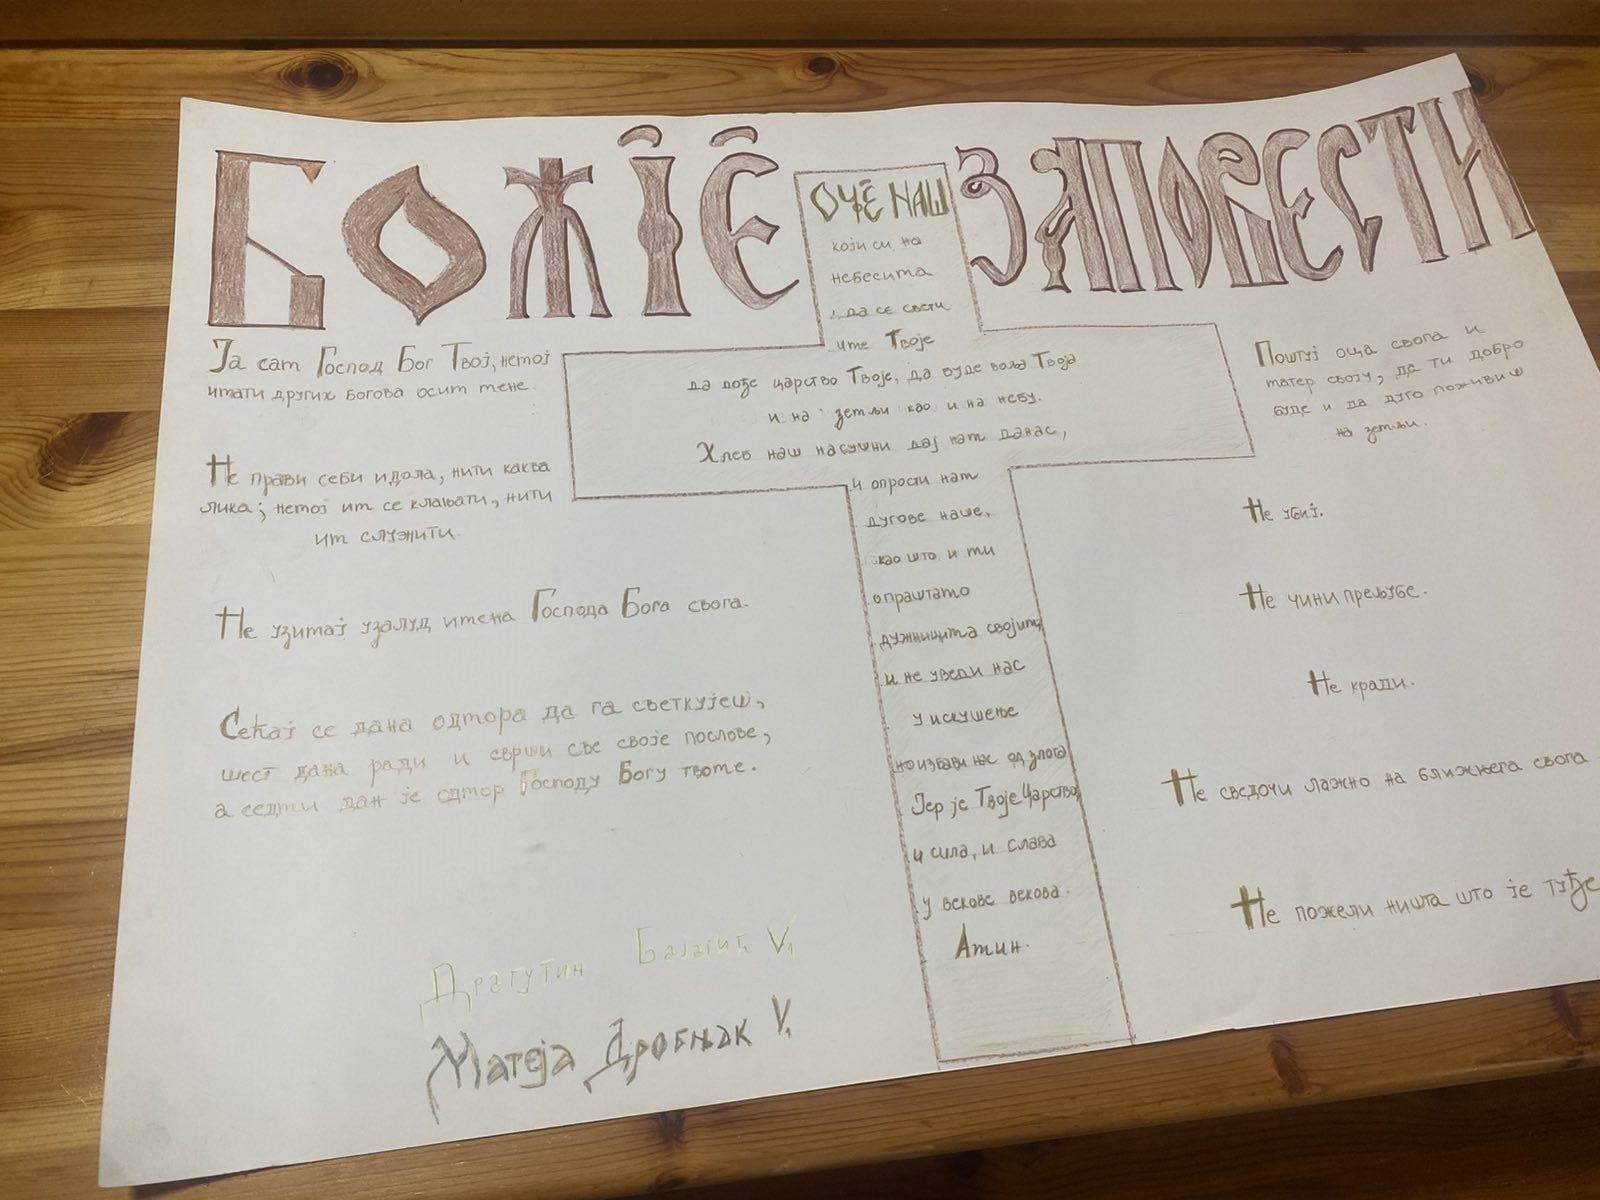 БОЖІЕ ЗАПОВЕСТИ
Ја сам Господ Бог Твој, немој
имати других богова осим мене.
Не прави себи идола, нити каква
лика; немој им се клањати, нити
им служити.
Не узимај узалуд имена Господа Бога свога.
Сећај се дана одмора да га светкујеш,
шест дана ради и сврши све своје послове,
а седми дан је одмор Господу Богу твоме.
Драгутин Балагић V₁
Матеја Дробњак V₁
ОЧЕ НАШ
који си на
небесима
, да се свети
име Твоје
да дође царство Твоје, да буде воља Твоја
и на земљи као и на небу.
Хлеб наш насушни дај нам данас,
и опрости нам
дугове наше,
као што и ми
опраштамо
дужницима својим,
и не уведи нас
у искушење
но избави нас од злога
Јер је Твоје Царство,
и сила, и слава
у векове векова.
Амин.
Поштуј оца свога и
матер своју, да ти добро
буде и да дуго поживиш
на земљи.
Не убиј.
Не чини прељубе.
Не кради.
Не сведочи лажно на ближњега свога
Не пожели ништа што је туђе